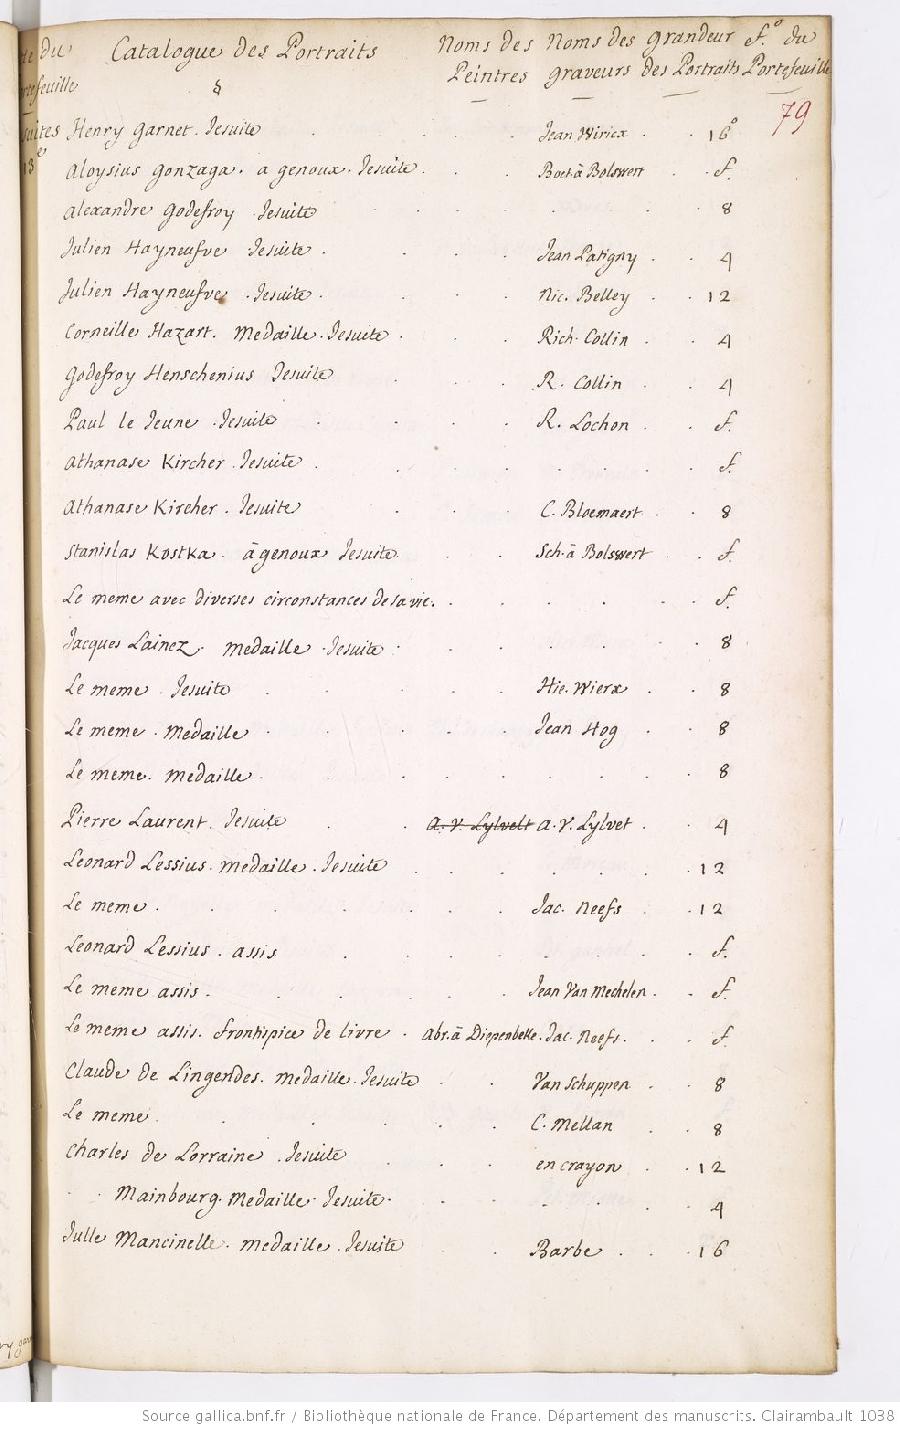 du Catalogue des Portraits Noms des Noms des grandeur f.º du
feuille § Peintres graveurs des Portraits Portefeuille
79
Henry Garnet. Jesuite . . . Jean Wiricx . . 16º
Aloysius Gonzaga. a genoux. Jesuite . . . Boet. à Bolswert . . f.
Alexandre Godefroy Jesuite . . . . . . 8
Julien Hayneufve Jesuite . . . Jean Patigny . . 4
Julien Hayneufve . Jesuite . . . Nic. Belley . . 12
Corneille Hazart. Medaille. Jesuite . . . Rich. Collin . . 4
Godefroy Henschenius Jesuite . . . R. Collin . . 4
Paul le Jeune . Jesuite . . . R. Lochon . . f.
Athanase Kircher. Jesuite . . . . . . f.
Athanase Kircher. Jesuite . . C. Bloemaert . . 8
Stanislas Kostka. à genoux Jesuite . . Sch. à Bolswert . f.
Le meme avec diverses circonstances de sa vie. . . . . . . f.
Jacques Lainez. Medaille . Jesuite . . . . . . 8
Le meme . Jesuite . . . . Hie. Wierx . . 8
Le meme . Medaille . . . . Jean Hog . . 8
Le meme. Medaille . . . . . . . 8
Pierre Laurent. Jesuite . . A. V. Lylvelt A. V. Lylvet . . 4
Leonard Lessius. Medaille. Jesuite . . . . . . 12
Le meme . . . . . . Jac. Neefs . . 12
Leonard Lessius . assis . . . . . . f.
Le meme assis . . . . . Jean Van Mechelen . . f.
Le meme assis. frontispice de livre . Abr. à Diepenbeke. Jac. Neefs. . . f.
Claude de Lingendes. Medaille. Jesuite . . Van Schuppen . . 8
Le meme . . . . . C. Mellan . . 8
Charles de Lorraine . Jesuite . . . en crayon . . 12
. . Mainbourg. Medaille. Jesuite . . . . . . 4
Julle Mancinelle. Medaille . Jesuite . Barbe . . . 16
Source gallica.bnf.fr / Bibliothèque nationale de France. Département des manuscrits. Clairambault 1038